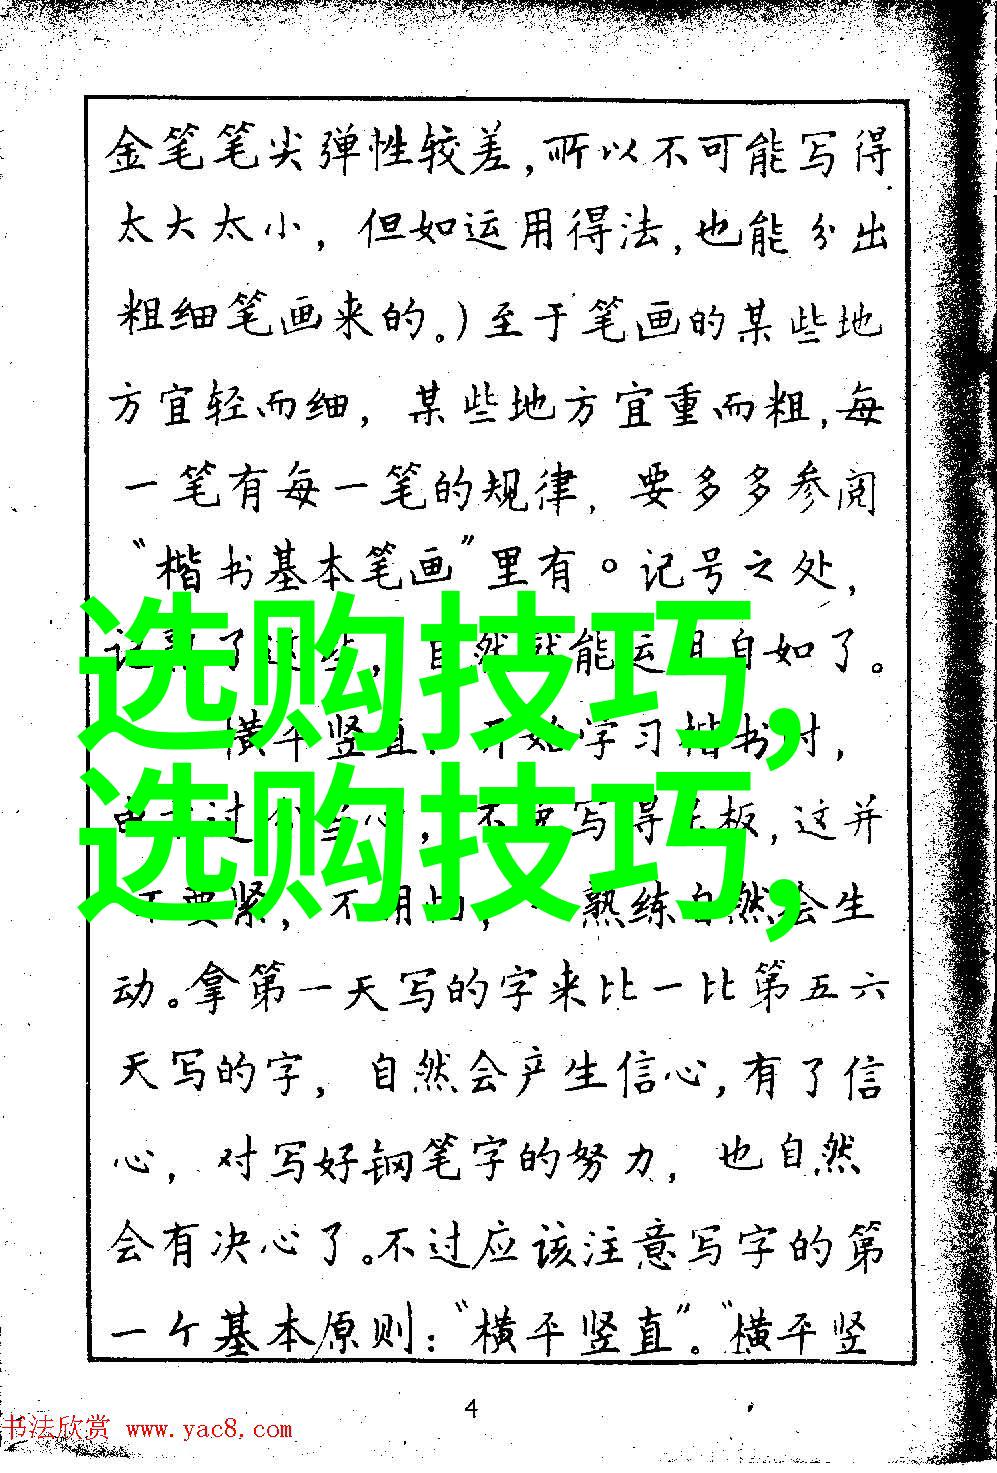 金笔笔尖弹性较差,所以不可能写得
太大太小，但如运用得法,也能分出
粗细笔画来的。)至于笔画的某些地
方宜轻而细，某些地方宜重而粗,每
一笔有每一笔的规律，要多多参阅
“楷书基本笔画”里有。记号之处，
自然就能运用自如了。
选购技巧,
横平竖直. 开始学习楷书时，
选购技巧,
不要写得 板,这并
熟练自然会生
动。拿第一天写的字来比一比第五六
天写的字，自然会产生信心,有了信
心，对写好钢笔字的努力，也自然
会有决心了。不过应该注意写字的第
一个基本原则：“横平竖直”。“横平竖
4
书法欣赏 www.yac8.com